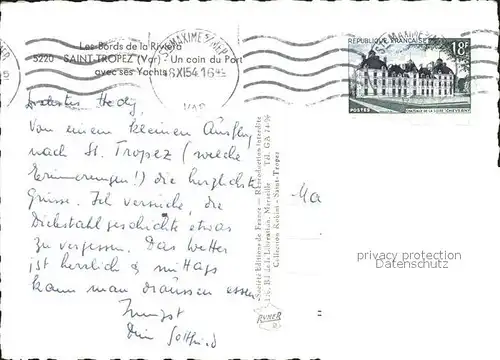 Les Bords de la Riviera
5220 - SAINT-TROPEZ (Var) - Un coin du Port
avec ses Yachts
STE MAXIME S/MER
VAR
RÉPUBLIQUE FRANÇAISE
18F
POSTES
DOMAINE DE LA LOIRE (CHEVERNY)
Liebstes Hedy,
Von einem kleinen Ausflug
nach St. Tropez (welche
Erinnerungen!) die herzlichsten
Grüsse. Ich versuche, die
Diebstahlgeschichte etwas
zu vergessen. Das Wetter
ist herrlich & mittags
kann man draussen essen
Innigst
Dein Gottfried
Société Editions de France - Reproduction interdite
Bd de la Libération, Marseille
Collection Rubini - Saint-Tropez
Ma
privacy protection
Datenschutz